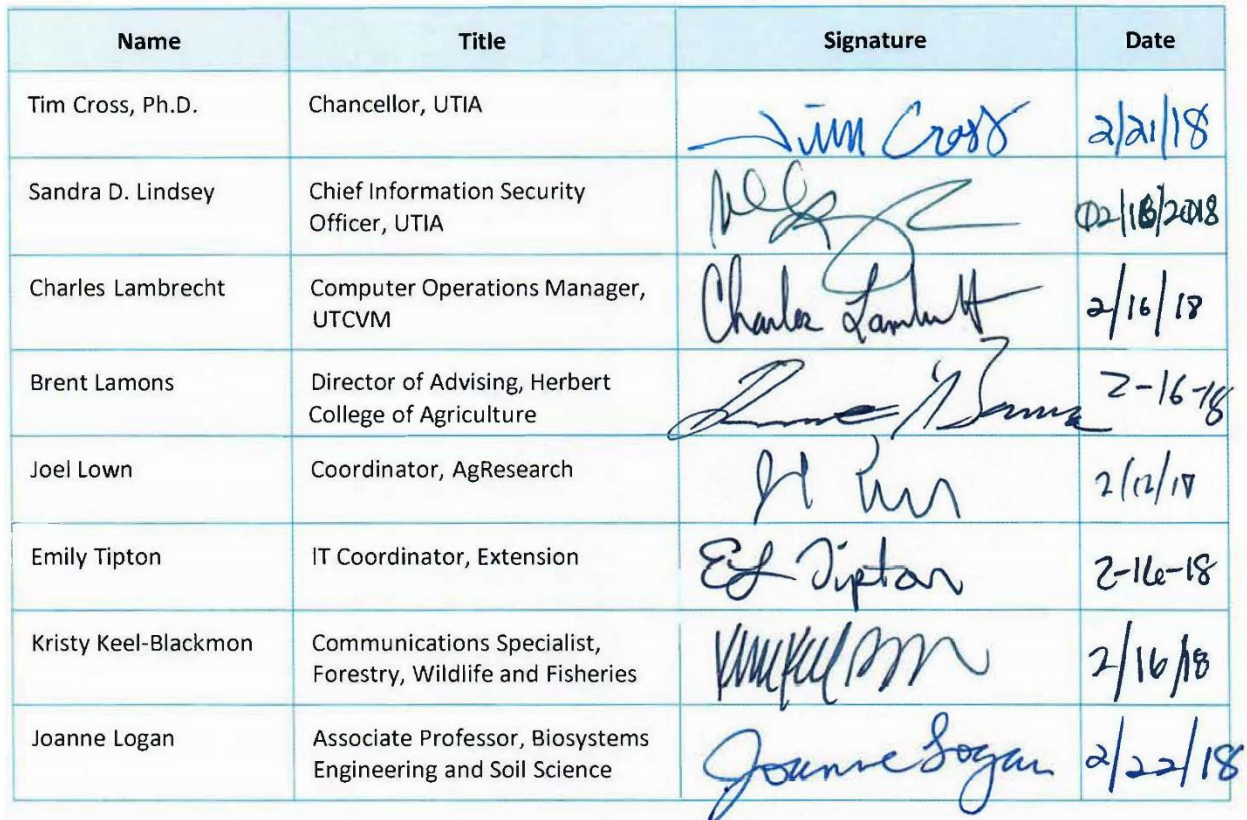 Name Title Signature Date
Tim Cross, Ph.D. Chancellor, UTIA Tim Cross 2/21/18
Sandra D. Lindsey Chief Information Security
Officer, UTIA
Charles Lambrecht Computer Operations Manager, Charles 2/16/18
UTCVM
Brent Lamons Director of Advising, Herbert 2-16-18
College of Agriculture
Joel Lown Coordinator, AgResearch
Emily Tipton IT Coordinator, Extension Tipton 2-16-18
Kristy Keel-Blackmon Communications Specialist, 2/16/18
Forestry, Wildlife and Fisheries
Joanne Logan Associate Professor, Biosystems Joanne Logan 2/22/18
Engineering and Soil Science